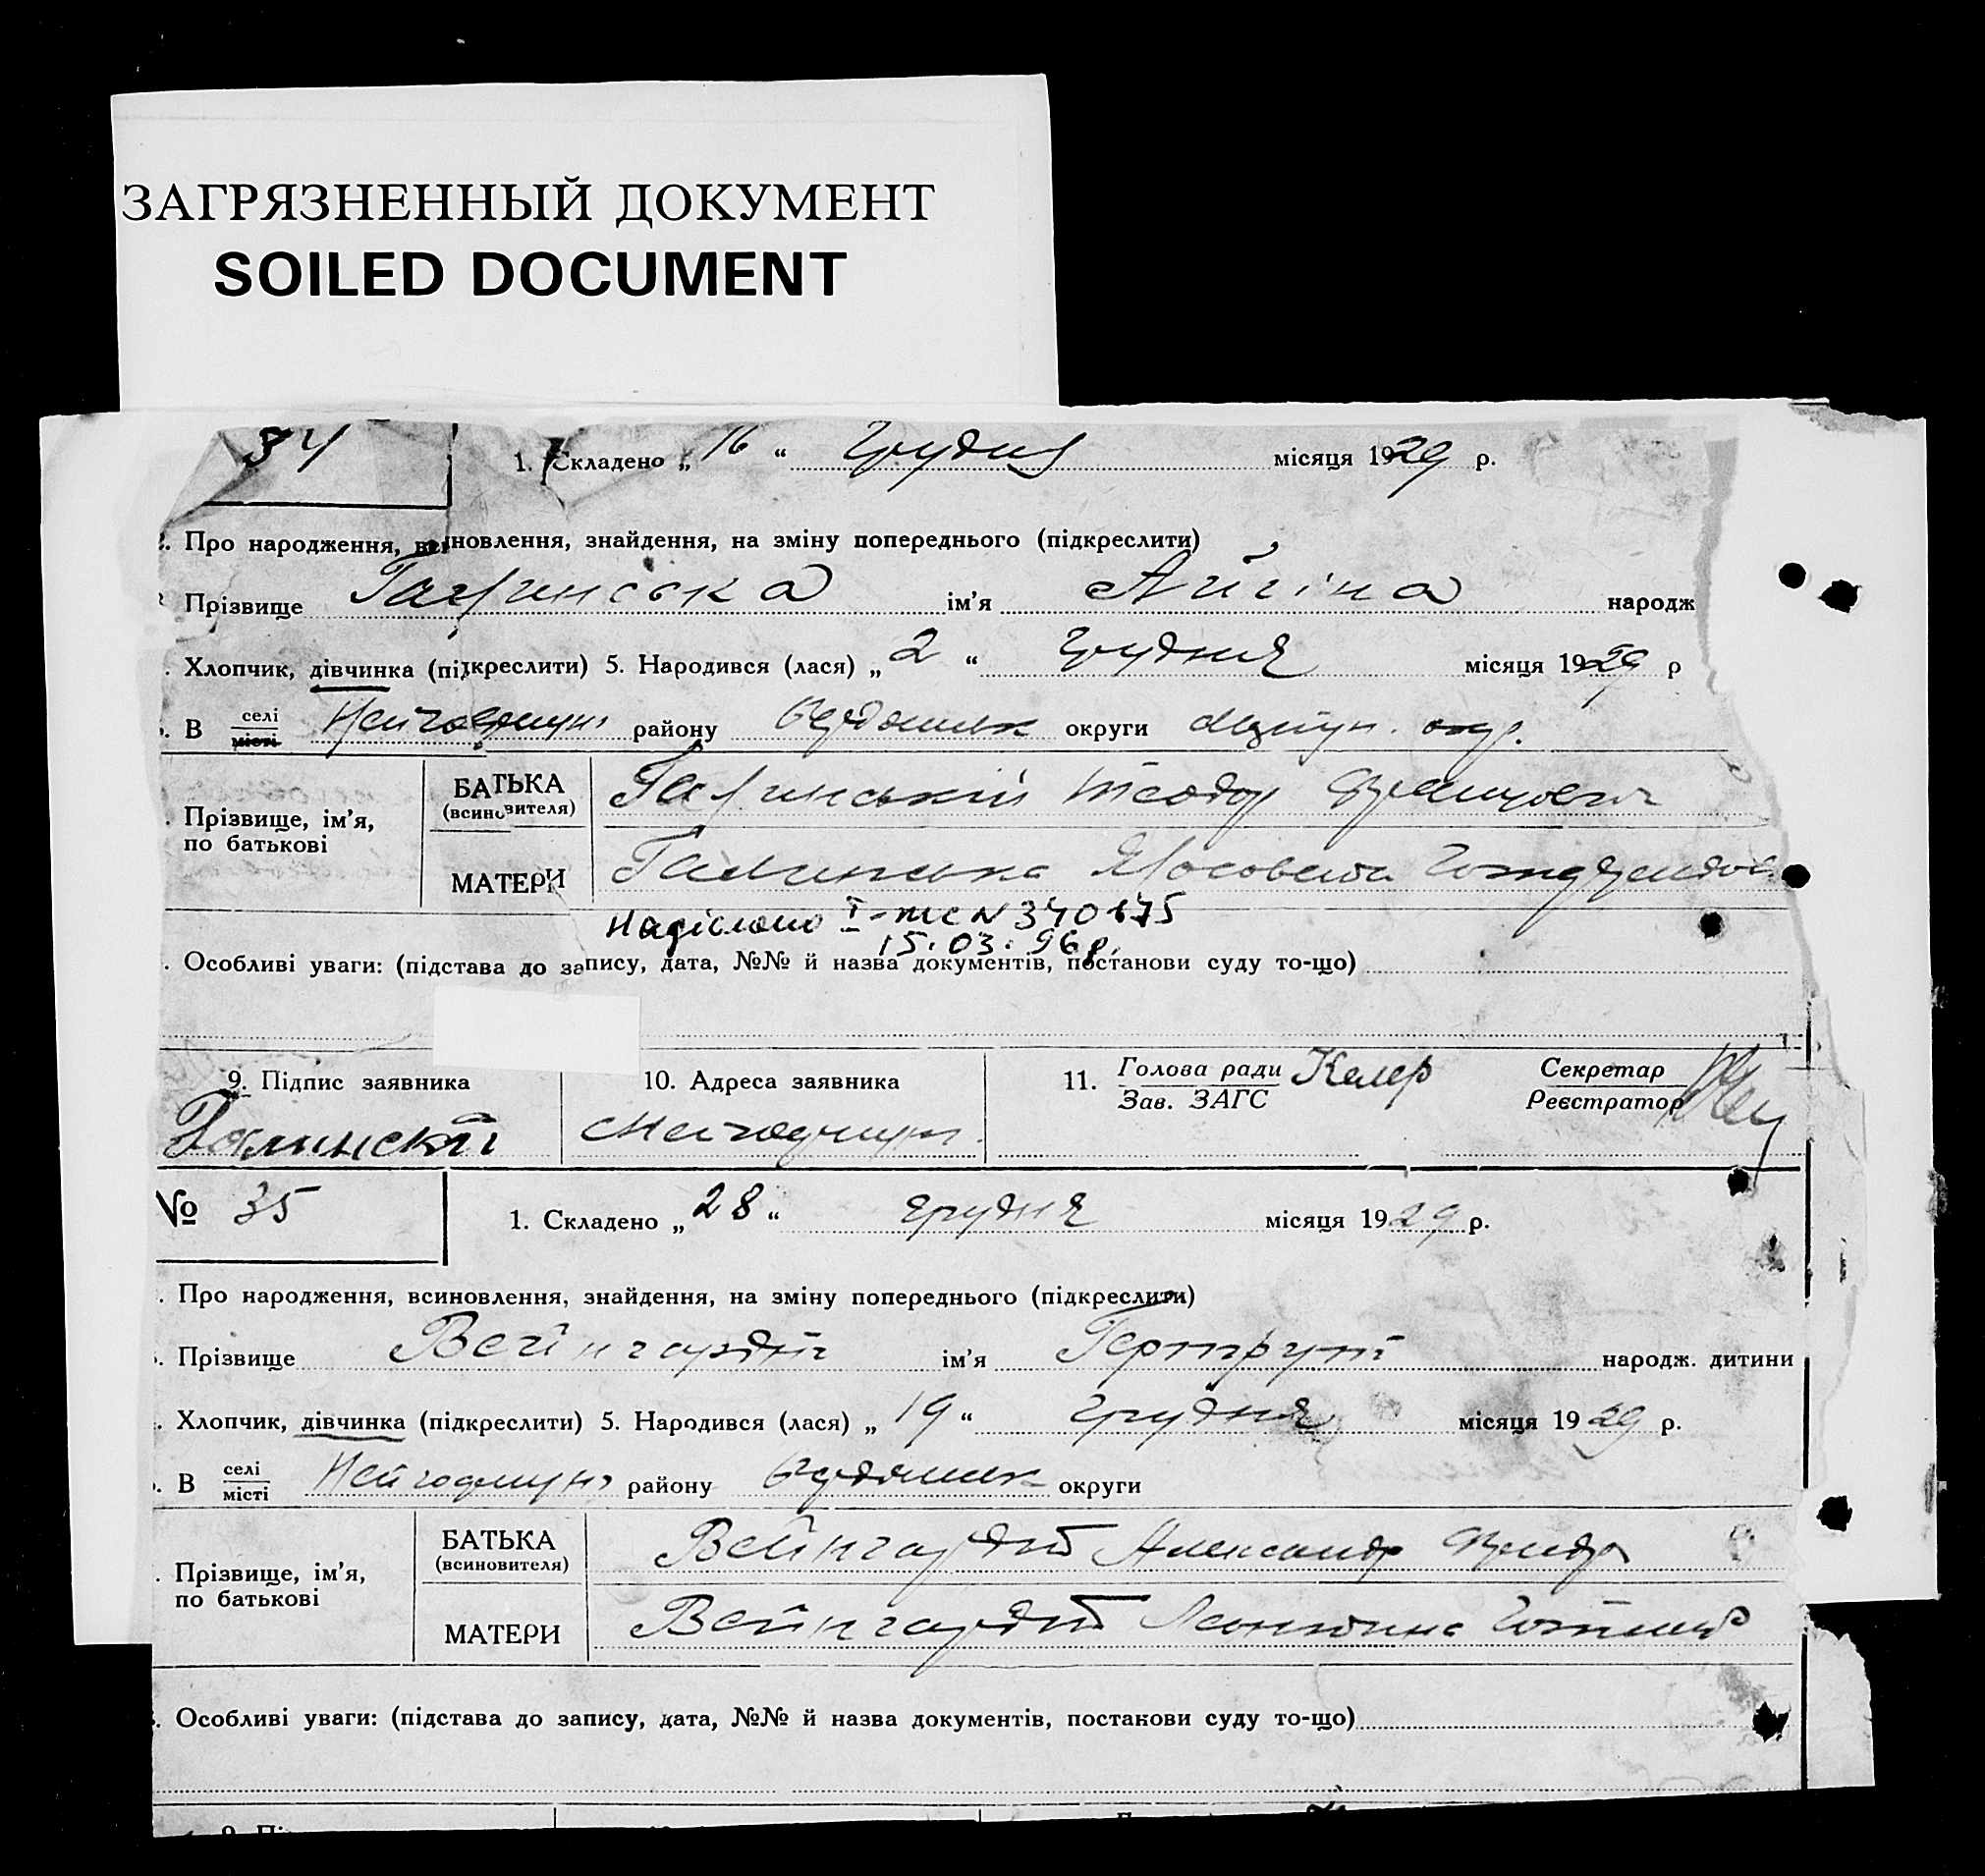 ЗАГРЯЗНЕННЫЙ ДОКУМЕНТ
SOILED DOCUMENT
34
1. Складено „ 16 “ Грудня місяця 1929 р.
Про народження, всиновлення, знайдення, на зміну попереднього (підкреслити)
Прізвище Галинська ім'я народж
Хлопчик, дівчинка (підкреслити) 5. Народився (лася) „ 2 “ Грудня місяця 1929 р
В селі місті району округи
БАТЬКА (всиновителя) Галинський Теодор
Прізвище, ім'я, по батькові
МАТЕРИ Галинська
Надіслано I-me N 340175
15.03.96р.
Особливі уваги: (підстава до запису, дата, №№ й назва документів, постанови суду то-що)
9. Підпис заявника 10. Адреса заявника 11. Голова ради Келер Секретар
Зав. ЗАГС Реєстратор
Галинскій
№ 35 1. Складено „ 28 “ грудня місяця 1929 р.
Про народження, всиновлення, знайдення, на зміну попереднього (підкреслити)
Прізвище Вейнгардт ім'я Гертрут народж. дитини
Хлопчик, дівчинка (підкреслити) 5. Народився (лася) „ 19 “ Грудня місяця 1929 р.
В селі місті району округи
БАТЬКА (всиновителя) Вейнгардт Александр
Прізвище, ім'я, по батькові
МАТЕРИ Вейнгардт
Особливі уваги: (підстава до запису, дата, №№ й назва документів, постанови суду то-що)